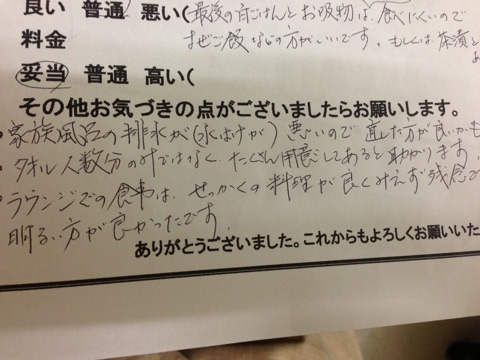 良い 普通 悪い( 最後の白ごはんとお吸物は、食べにくいので
料金 まぜご飯などの方がいいです。もしくは茶漬と
妥当 普通 高い(
その他お気づきの点がございましたらお願いします。
・家族風呂の排水が(水はけが)悪いので直した方が良いかも
・タオル人数分のみではなく、たくさん用意してあると助かります。
・ラウンジでの食事は、せっかくの料理が良くみえず残念で
明るい方が良かったです。
ありがとうございました。これからもよろしくお願いいた